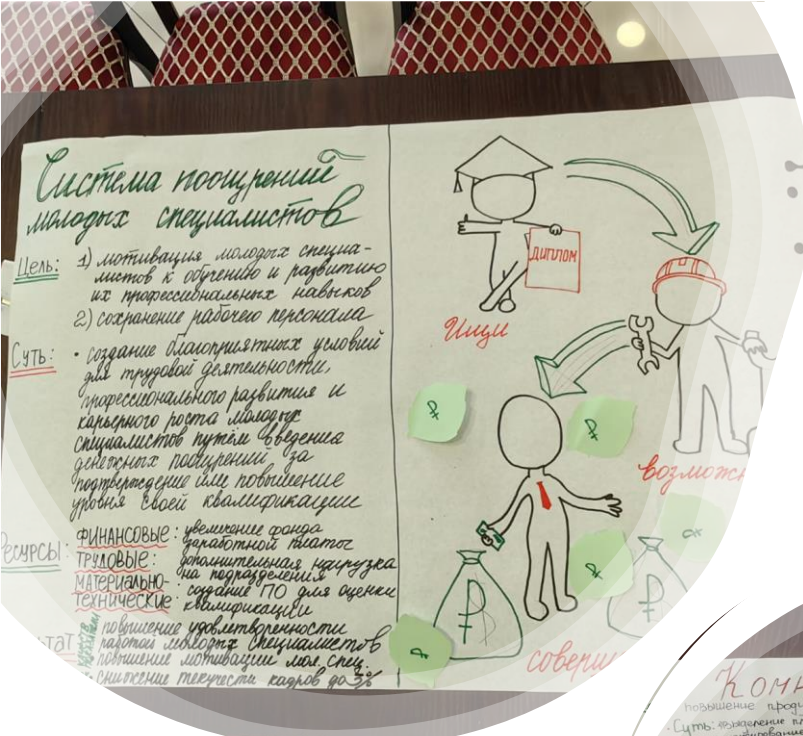 Система поощрений
молодых специалистов
Цель:
1) мотивация молодых специа-
листов к обучению и развитию
их профессиональных навыков
2) сохранение рабочего персонала
Суть:
• создание благоприятных условий
для трудовой деятельности,
профессионального развития и
карьерного роста молодых
специалистов путём введения
денежных поощрений за
подтверждение или повышение
уровня своей квалификации
есурсы:
ФИНАНСОВЫЕ: увеличение фонда
заработной платы
ТРУДОВЫЕ: дополнительная нагрузка
на подразделения
МАТЕРИАЛЬНО-
ТЕХНИЧЕСКИЕ: создание ПО для оценки
квалификации
тат
повышение удовлетворенности
работой молодых специалистов
повышение мотивации мол. спец.
снижение текучести кадров до 3%
ДИПЛОМ
Ищи
возможн
₽
₽
₽
₽
₽
₽
₽
соверш
Ком
повышение проду
• Суть: